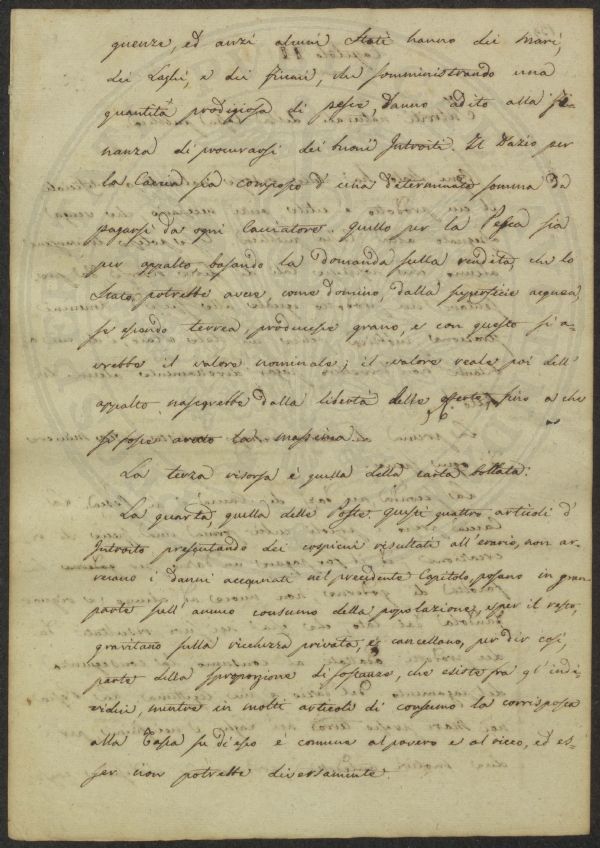 guenze, ed anzi alcuni Stati hanno dei Mari,
dei Laghi, e dei fiumi, che somministrando una
quantità prodigiosa di pesce, danno adito alla fi-
nanza di procurarsi dei buoni Introiti. Il Dazio per
la Caccia sia composto d'una determinata somma da
pagarsi da ogni Cacciatore. quello per la Pesca sia
per appalto, basando la domanda sulla rendita, che lo
Stato potrebbe avere come domino, dalla superficie acquea,
se essendo terrea producesse grano, e con questo si a-
vrebbe il valore nominale; il valore reale poi dell'
appalto nascerebbe dalla libertà delle offerte fino a che
si fosse avuto la massima.
La terza risorsa è quella della carta bollata:
La quarta, quella delle Poste. questi quattro articoli d'
Introito presentando dei cospicui risultati all'erario, non ar-
recano i danni accennati nel precedente Capitolo, posano in gran
parte sull'annuo consumo della popolazione, e per il resto,
gravitano sulla ricchezza privata, e cancellano, per dir così,
parte della sproporzione di sostanze, che esiste fra gl'indi-
vidui, mentre in molti articoli di consumo la corrisposta
alla Tassa su d'esso è comune al povero e al ricco, ed es-
ser non potrebbe diversamente.